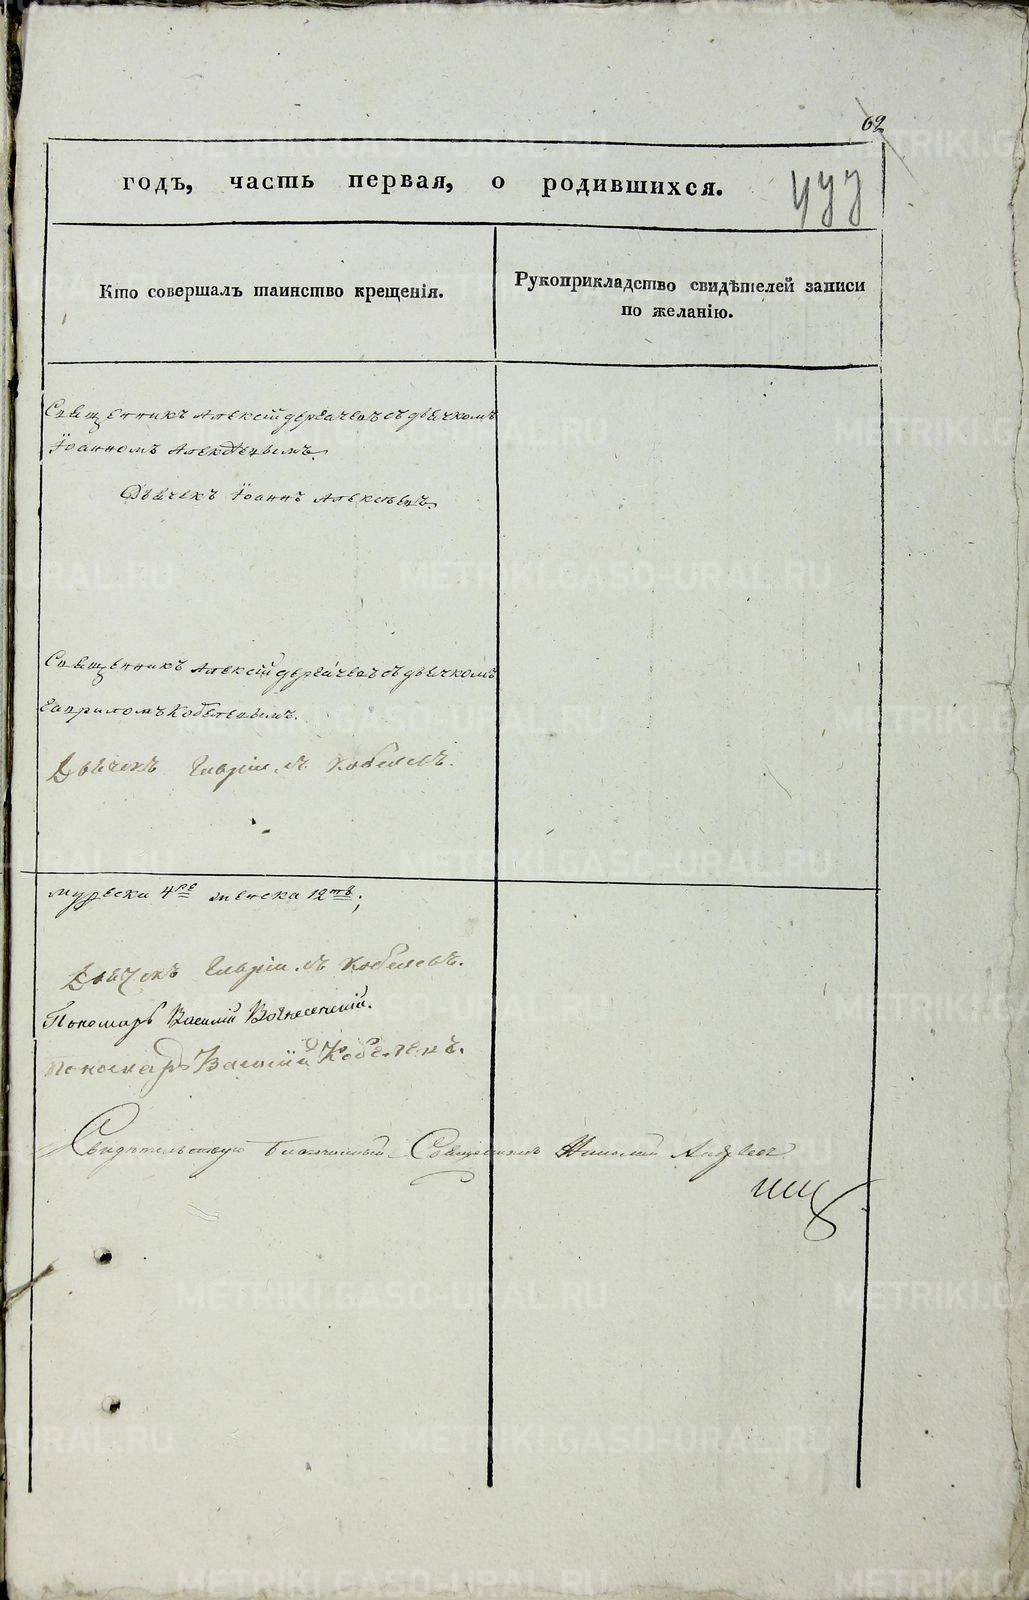 62
годъ, часть первая, о родившихся.
477
Кто совершалъ таинство крещенія.
Рукоприкладство свидѣтелей записи
по желанію.
Священникъ Алексій Дергачевъ съ дьячкомъ
Іоанномъ Алексѣевымъ.
Дьячекъ Іоаннъ Алексѣевъ.
Священникъ Алексій Дергачевъ съ дьячкомъ
Гавриломъ Кобелевымъ.
Дьячекъ Гаврiилъ Кобелевъ.
4ре женска 12ть;
Дьячекъ Гаврiилъ Кобелевъ.
Пономарь Василій Вознесенскій.
Пономарь Василій Кобелевъ.
Свидѣтельствую Благочинный Священникъ Николай Андреевъ
METRIKI.GASO-URAL.RU